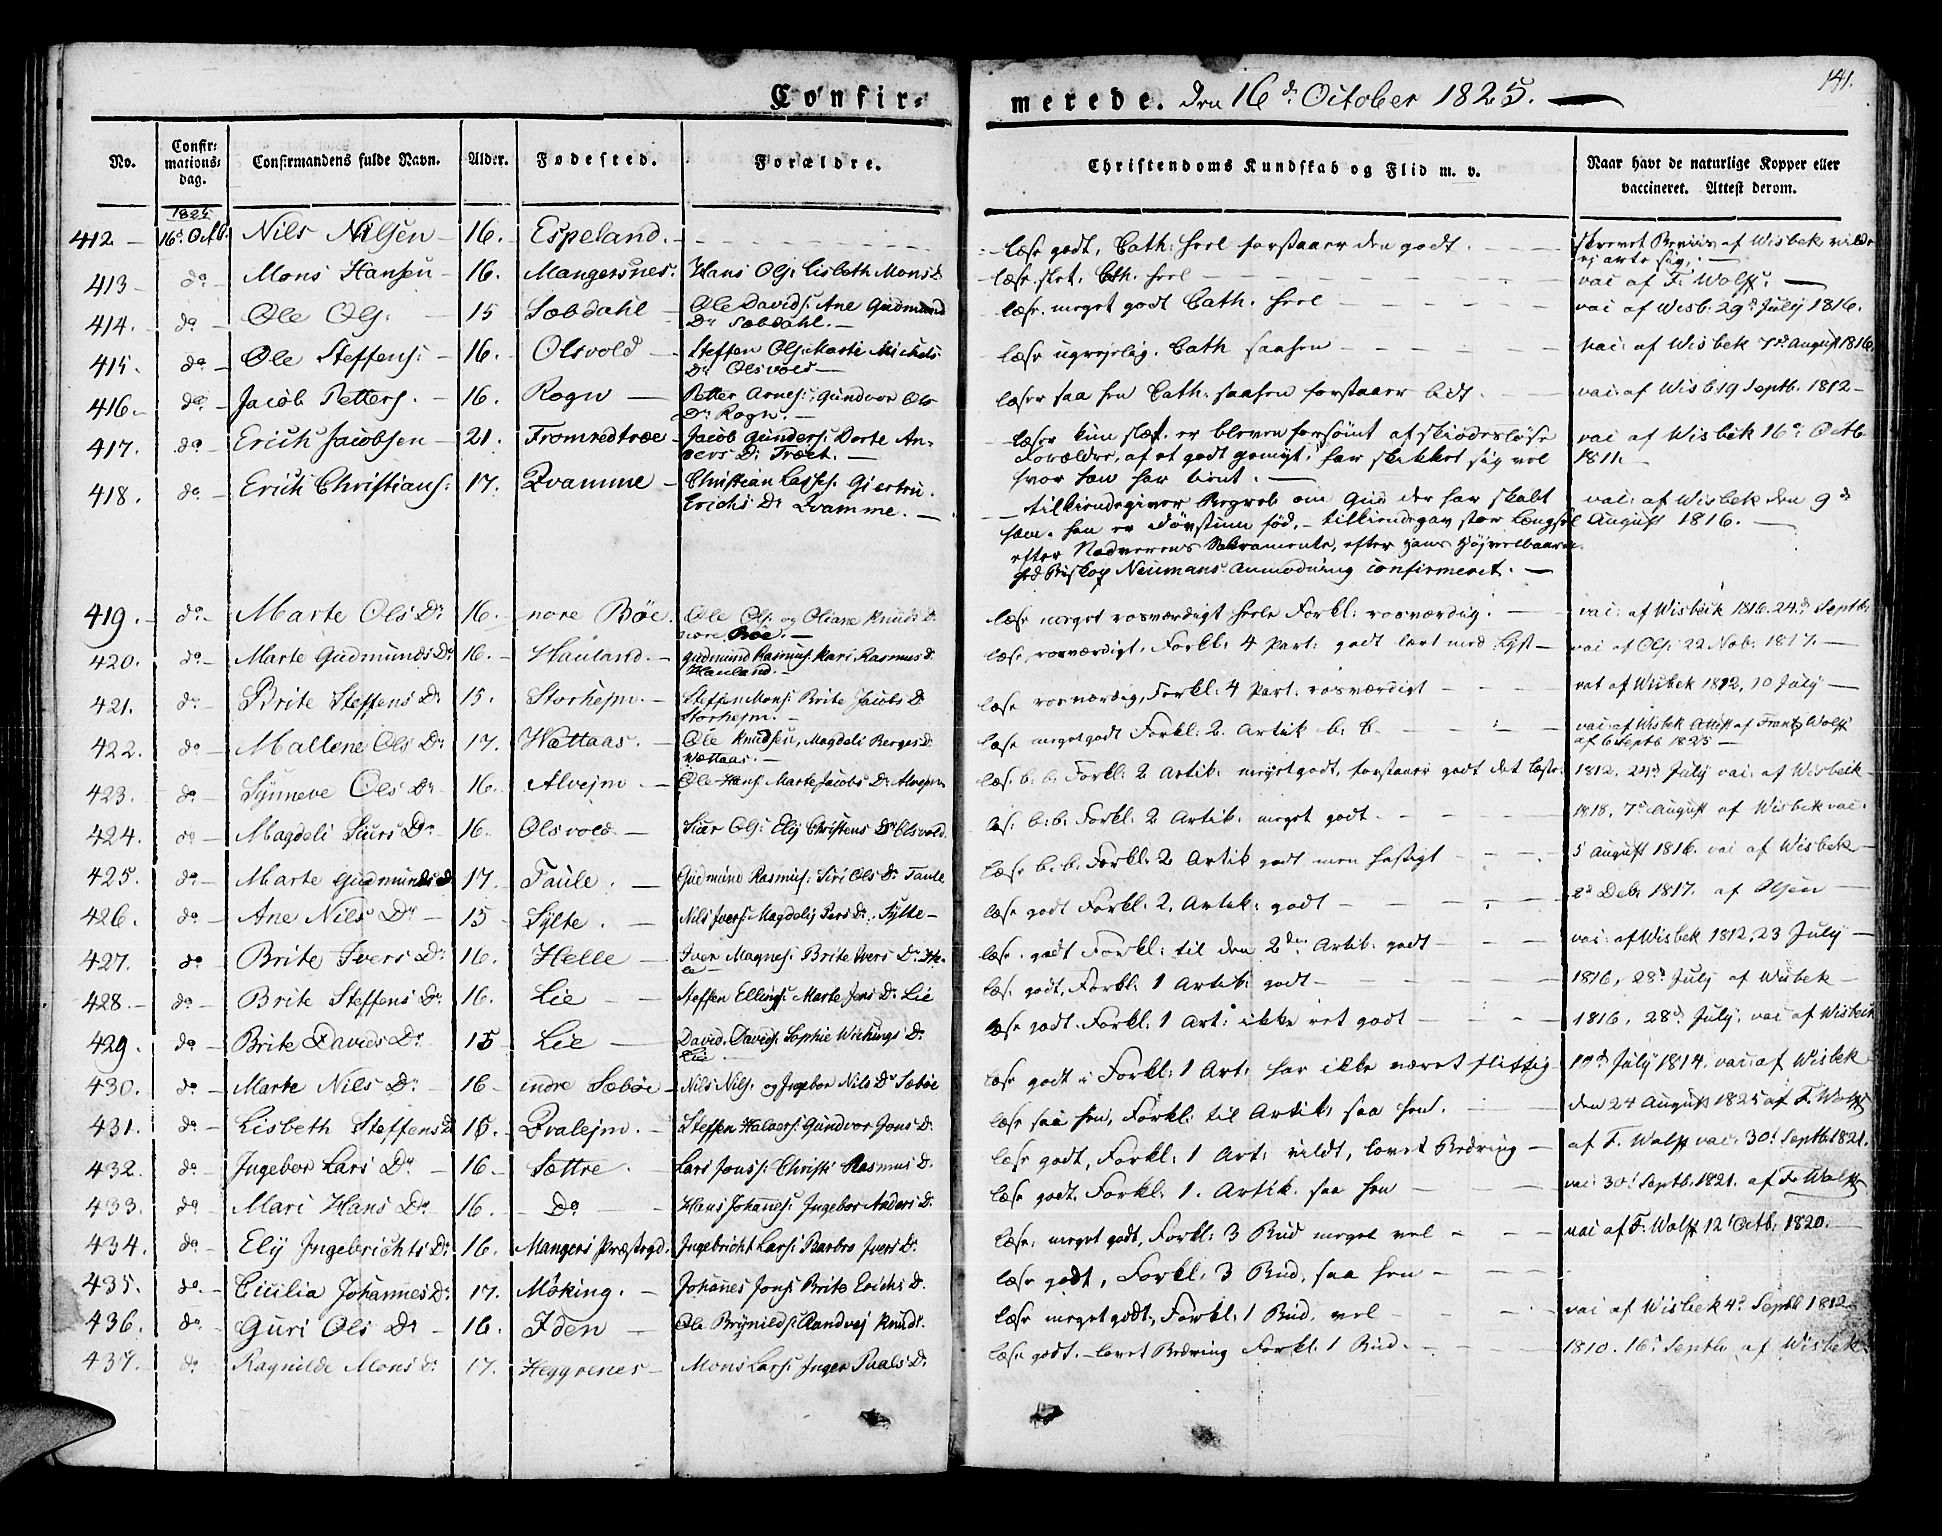 Confir-
merede. den 16d. October 1825.
141.
No. Confir-mations-dag. Confirmandens fulde Navn. Alder. Fødested. Forældre. Christendoms Kundskab og Flid m. v. Naar havt de naturlige Kopper eller vaccineret. Attest derom.
1825
412 - 16d. Octb. Nils Nilsen - 16. - Espeland. - læse godt, Cath: heel forstaaer den godt.
413 - do - Mons Hansen - 16. - Mangersnes. Hans Ols: Lisbeth Mons D. læse slet, Cth. heel vai af F. Wolff.
414. - do - Ole Ols: - 15 Sæbdahl - Ole Davids: Ane Gudmund læse meget godt Cath. heel vai af Wisb. 29d July 1816.
Dr Sæbdahl. -
415 - do - Ole Steffens: - 16. - Olsvold - Steffen Ols: Marte Michels læse ugrejelig. Cath saasen vai: af Wisbek 7d August 1816.
Dr Olsvold -
416. - do - Jacob Petters. - 16. - Rogn - Petter Arnes: Gundvor Ols læser saa hen Cath: saahen forstaaer lidt. vai: af Wisb 19 Septb. 1812 -
Dr Rogn. -
417. - do - Erich Jacobsen - 21. - Fromredtræe - Jacob Gunders: Dorte An- læser kun slet. er bleven forsömt af skiödeslöse vai af Wisbek 16d Octb
ders Dr Træet. - Forældre, af et godt gemyt, har skikket sig vel 1811. -
hvor han har tient. -
418. do - Erich Christians: 17. Qvamme - Christian Lasses: Giertru. - tilkiendegiver Begreb om Gud der har skabt vai: af Wisbek den 9d
Erichs Dr Qvamme. - ham. han er Dövstum fød, - tilkiendegav stor Længsel August 1816. -
efter Nadverens Sakramente, efter Hans Højvelbaaren.
Hr Biskop Neumans Anmodning confirmeret. -
419. - do - Marte Ols Dr 16. - nore Böe. Ole Ols: og Oliane Knuds D. læse meget rosværdigt heele Forkl: rosværdig. vai: af Wisbeck 1816. 24d Septb.
nore Böe. -
420. do - Marte Gudmunds Dr 16. - Hauland. - Gudmund Rasmus: Kari Rasmus D. læse rosværdigt, Forkl: 4 Part: godt lært med Lyst - vai af Ols: 22 Nob. 1817. -
Hauland. -
421. do - Brite Steffens Dr 15. - Storhejm. - Steffen Mons: Brite Jacobs D læse rosværdig, Forkl: 4 Part. rosværdigt vat af Wisbek 1812, 10 July -
Storhejm. -
422. do - Mallene Ols Dr - 17. Wættaas. - Ole Knudsen, Magdeli Berges D. læse megetgodt Forkl: 2. Artik b. b. vai: af Wisbek Attest af Frantz Wolff
Wættaas. - af 6 Septb 1825 -
423. do - Synneve Ols Dr - 16. - Alvejm - Ole Hans: Marte Jacobs Dr Alvejm læs: b: b: Forkl: 2 Artik: meget godt, forstaaer godt det læste. 1812. 24d July vai: af Wisbeik -
424. do - Magdeli Siurs Dr - 16. Olsvold - Siur Ols: Elij Christens Dr Olsvold. læs: b: b: Forkl: 2 Artik: meget godt. 1818, 7d August af Wisbek vai.
425. do - Marte Gudmunds D 17. - Taule. - Gudmund Rasmus: Siri Ols Dr Taule læse b. b: Forkl: 2 Artik godt men hastigt 5 August 1816. vai af Wisbek -
426. do - Ane Nils Dr - 15 - Sylte. - Nils Ivers: Magdelij Pers Dr Sylte - læse godt Forkl: 2. Artik: godt 2d Deb: 1817. af Olsen -
427. do - Brite Ivers Dr - 16. - Helle - Iver Magnes: Brite Ivers Dr He- læse. godt Forkl: til den 2den Artik: godt vai: af Wisbek 1812, 23 July -
le -
428. - do - Brite Steffens Dr 16. Lie - Steffen Ellings: Marte Jens Dr Lie læs: godt, Forkl: 1 Artik: godt - 1816, 28d July af Wisbek -
429. do - Brite Davids Dr 15 - Lie - David Davids: Sophie Wichings Dr læse godt. Forkl: 1 Art: ikke ret godt 1816. 28d July. vai af Wisbeik
Lie
430. do - Marte Nils Dr 16 - indre Sæböe - Nils Nils: og Ingebor Nils Dr Sæböe læse godt Forkl: 1 Art: har ikke været flittig - 10d July 1814. vai: af Wisbek
431. do - Lisbeth Steffens D 15. - Qvalejm. - Steffen Halvers: Gundvor Jons D. læse saa hen, Forkl: til Artik: saa hen. den 24 August 1825 af F. Wolff
432. do - Ingebor Lars Dr - 16. - Sættre. - Lars Jons: Christi Rasmus D. læse godt, Forkl: 1 Art: vildt, lovet Bedring - af F. Wolff vai: 30d Septb 1821.
433. do - Mari Hans Dr - 16. - Do - Hans Johannes: Ingebor Anders D. læse godt. Forkl: 1. Artik. saa hen vai 30d Septb. 1821. af F. Wolff
434. do - Elij Ingebrichts Dr 16. Mangers Præstegd. Ingebricht Lars: Barbro Ivers D. læse: meget godt, Forkl: 3 Bud meget vel vai af F. Wolff 12d Octb: 1820. -
435. do. - Cicilia Johannes Dr. 17. Möking. - Johannes Jons: Brite Erichs D. læse godt, Forkl: 3 Bud. saa hen -
436. do - Guri Ols Dr - 16. Iden - Ole Brynilds: Randvej Knuds. læse meget godt, Forkl: 1 Bud. vel vai af Wisbek 4d Septbl 1812
437. do Ragnilde Mons Dr 17. Heggrenes - Mons Lars: Inger Paals Dr læse godt. - lovet Bedring Forkl: 1 Bud. 1810. 16d Septb. af Wisbek